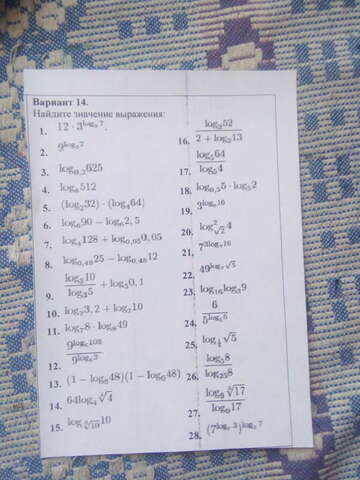 Вариант 14.
Найдите значение выражения:
1. 12 · 3^{log_3 7}.
2. 9^{log_3 7}
3. log_{0,2} 625
4. log_8 512
5. (log_2 32) · (log_4 64)
6. log_6 90 − log_6 2,5
7. log_4 128 + log_{0,05} 0,05
8. log_{0,48} 25 − log_{0,48} 12
9. \frac{log_3 10}{log_3 5} + log_5 0,1
10. log_2 3,2 + log_2 10
11. log_7 8 · log_8 49
12. \frac{9^{log_5 108}}{9^{log_5 3}}
13. (1 − log_6 48)(1 − log_6 48)
14. 64 log_4 \sqrt{4}
15. log_{\sqrt{10}} 10
16. \frac{log_2 52}{2 + log_2 13}
17. \frac{log_5 64}{log_5 4}
18. log_{0,5} 5 · log_5 2
19. 3^{log_9 16}
20. log^2_{\sqrt{2}} 4
21. 7^{3 log_7 16}
22. 49^{log_7 \sqrt{5}}
23. log_{16} log_4 9
24. \frac{6}{5^{log_5 5}}
25. log_{\frac{1}{5}} \sqrt{5}
26. \frac{log_5 8}{log_{25} 8}
27. \frac{log_6 \sqrt{17}}{log_6 17}
28. (7^{log_7 3})^{log_3 7}